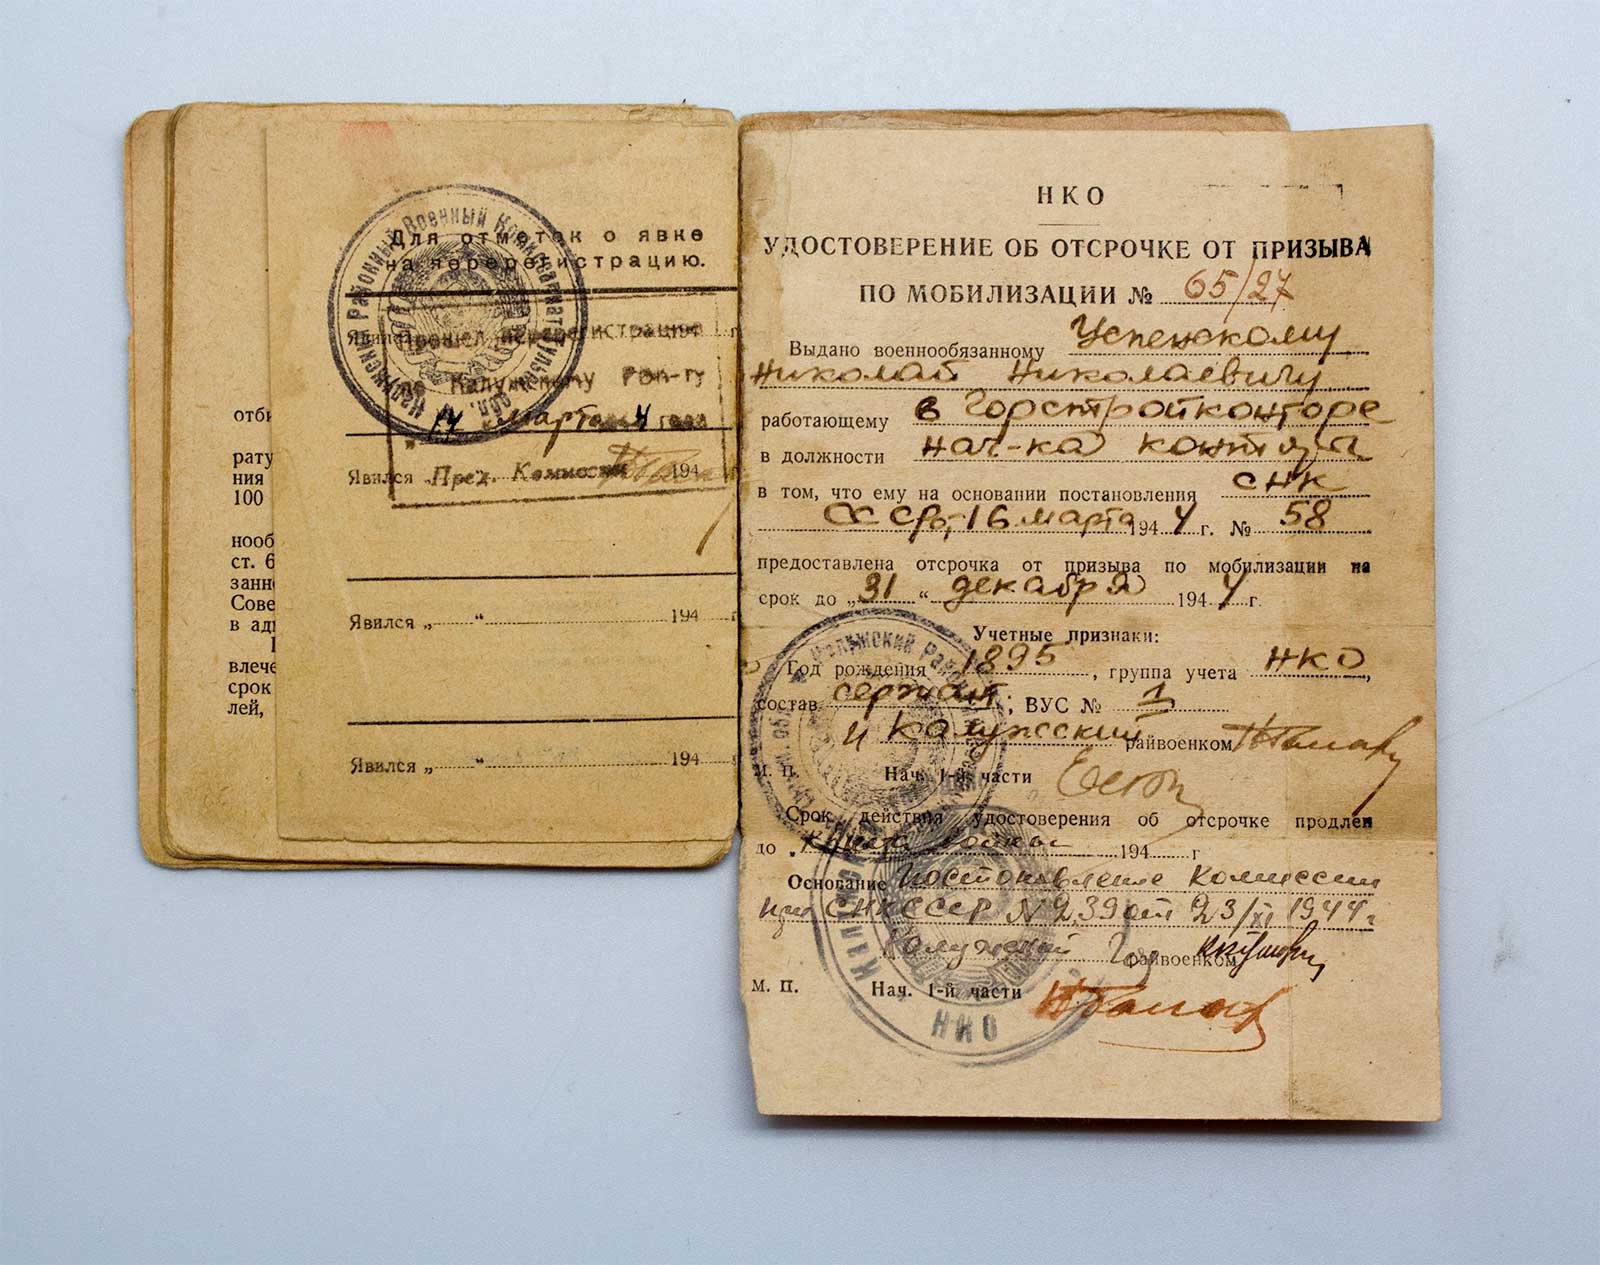 отби
рату
ния
100
нооб
ст. 6
занн
Сове
в ад
влече
срок
лей,
Для отметок о явке
на перерегистрацию.
Прошел перерегистрацию
по Калужскому
17 марта 4 года
Явился Пред. Комиссии 194
Явился „ “ 194
Явился „ “ 194
Районный Военный Комиссариат
НКО
УДОСТОВЕРЕНИЕ ОБ ОТСРОЧКЕ ОТ ПРИЗЫВА
ПО МОБИЛИЗАЦИИ № 65/27
Выдано военнообязанному Успенскому
Николай Николаевичу
работающему в Горстройконторе
в должности нач-ка конторы
в том, что ему на основании постановления СНК
СССР, 16 марта 1944 г. № 58
предоставлена отсрочка от призыва по мобилизации на
срок до „31 “ декабря 1944 г.
Учетные признаки:
Год рождения 1895, группа учета НКО,
состав сержант; ВУС № 1
Калужский райвоенком
М. П. Нач. 1-й части
Срок действия удостоверения об отсрочке продлен
до „ конца войны 194 г
Основание Постановление Комиссии
при СНК СССР N 239 от 23/XI 1944 г.
Калужский Гор райвоенком
М. П. Нач. 1-й части
НКО